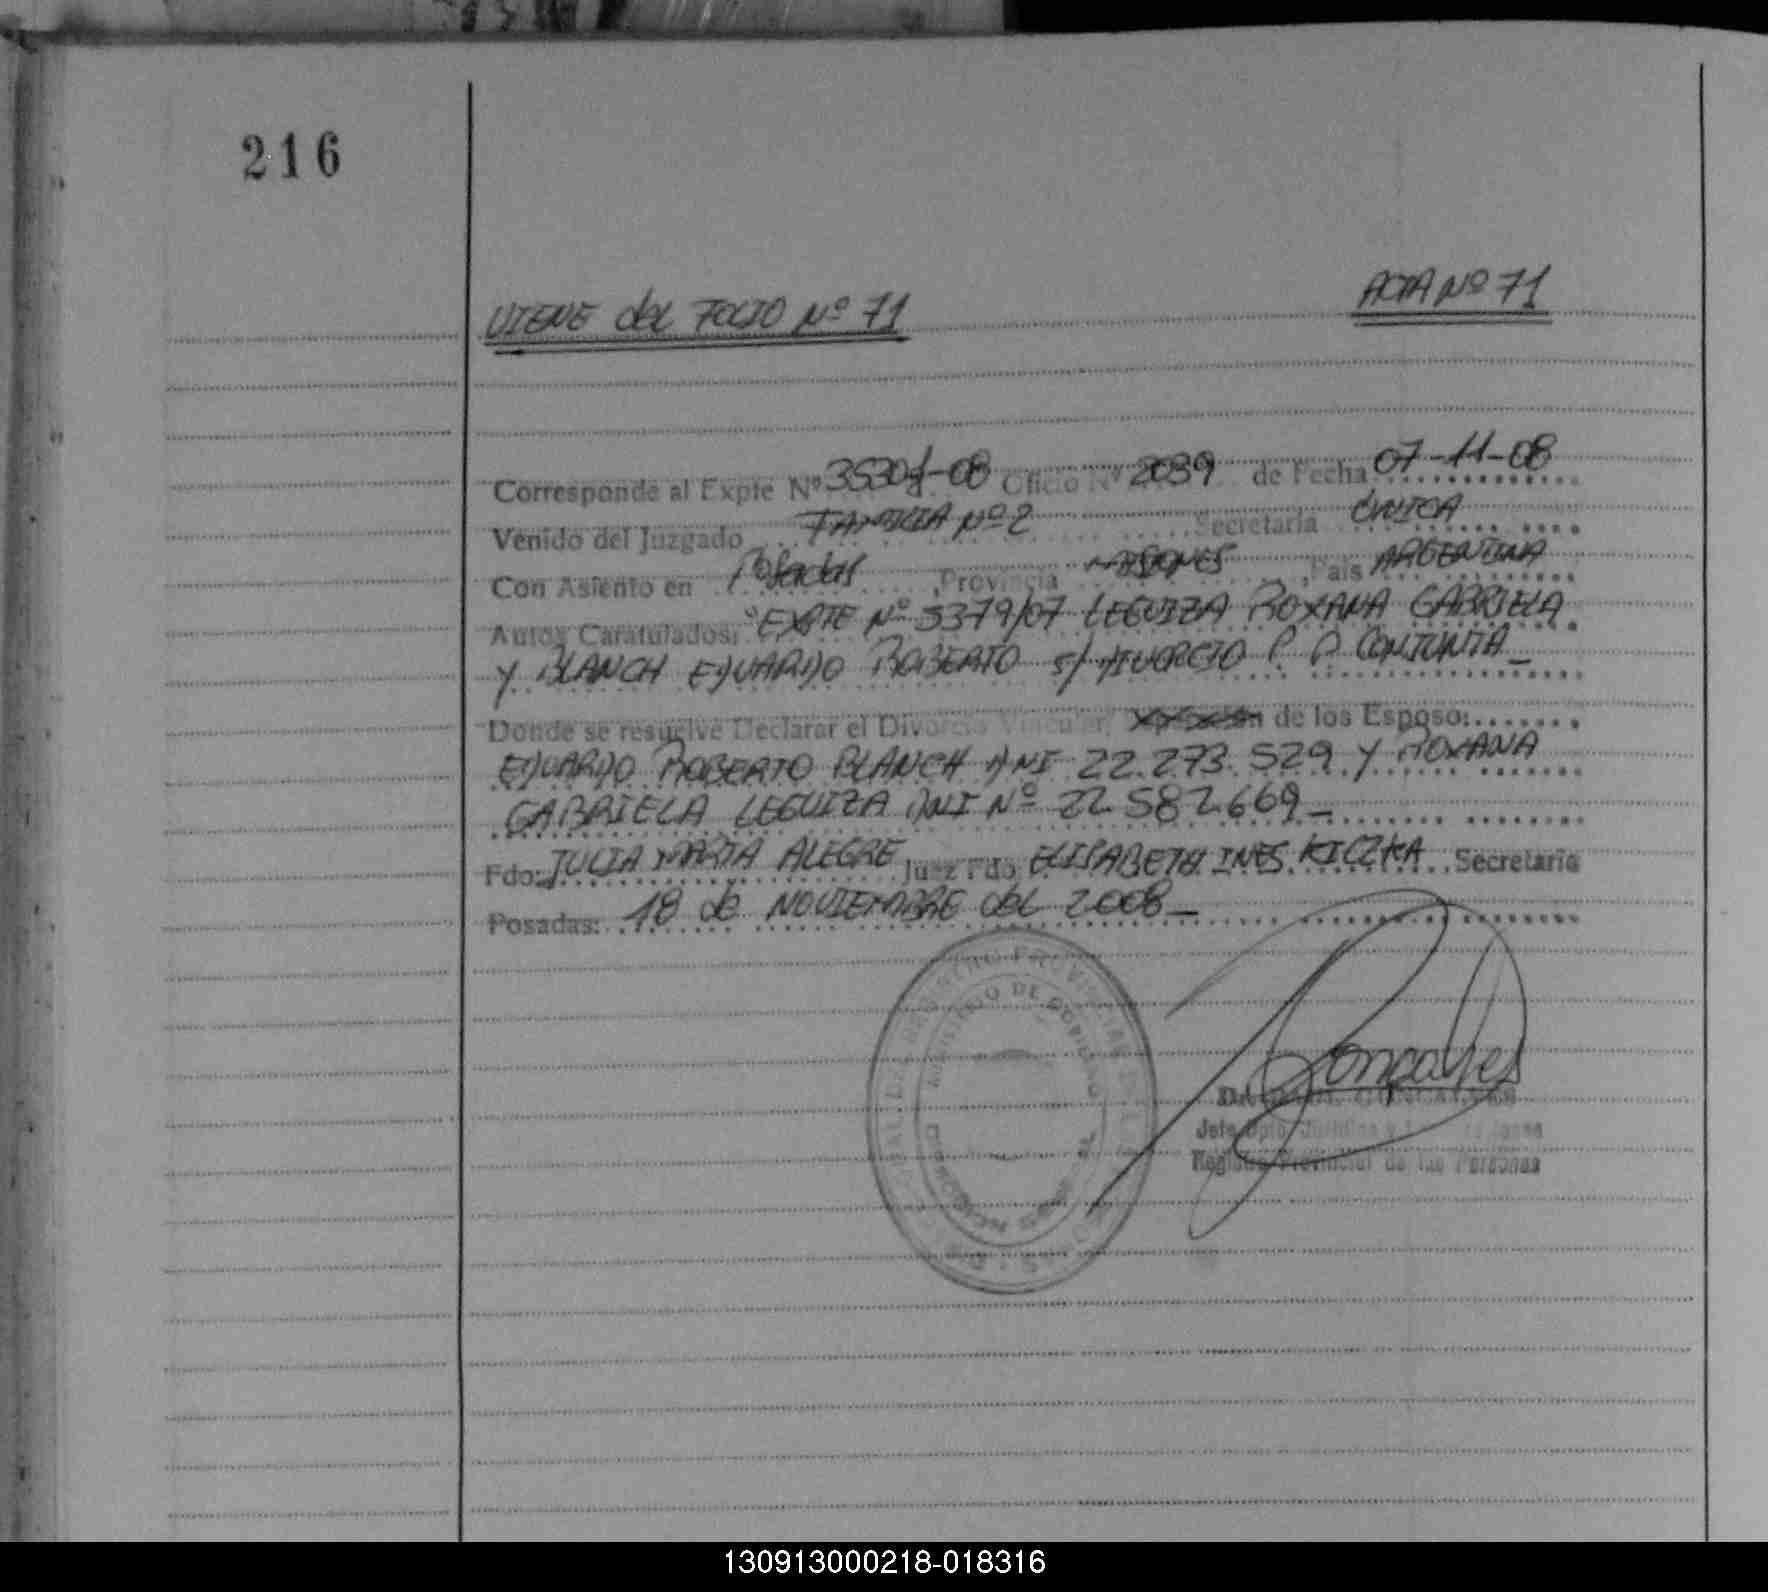 216
VIENE del FOLIO Nº 71
ACTA Nº 71
Corresponde al Expte Nº -08 Oficio Nº 2039 de Fecha 07-11-08
Venido del Juzgado FAMILIA Nº 2 Secretaria ÚNICA
Con Asiento en Posadas, Provincia MISIONES, Pais ARGENTINA
Autos Caratulados: "EXPTE Nº 5379/07 LEGUIZA ROXANA GABRIELA
Y BLANCH EDUARDO ROBERTO s/ DIVORCIO P. P. CONJUNTA_
Donde se resuelve Declarar el Divorcio Vincular, de los Esposo:
EDUARDO ROBERTO BLANCH DNI 22.273.529 Y ROXANA
GABRIELA LEGUIZA DNI Nº 22.582.669_
Fdo: JULIA MARTA ALEGRE Juez Fdo: ELISABETH INES KICZKA Secretaria
Posadas: 18 de NOVIEMBRE del 2008_
MINISTERIO DE GOBIERNO
Gonçalves
GONCALVES
Jefe Dpto. Jurídico y
Registro Provincial de las Personas
130913000218-018316